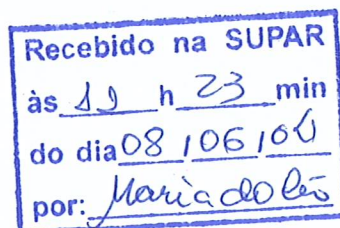 Recebido na SUPAR
às h 23 min
do dia 08/06/
por: Maria do